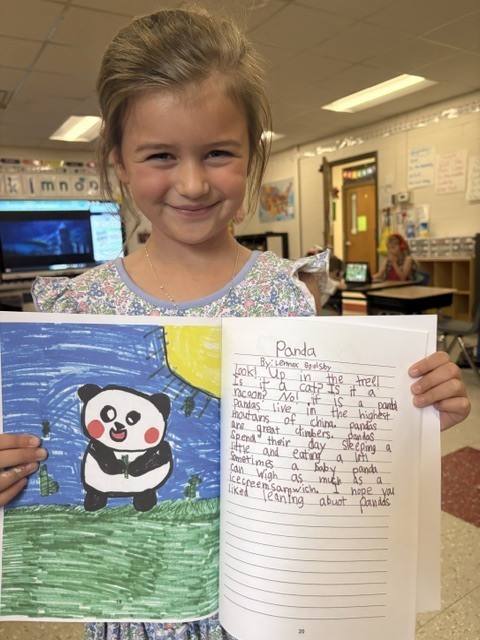 k l m n o p
Panda
By: Lennox Goolsby
Look! Up in the tree!
Is it a cat? Is it a
racoon? No! it is a panda
pandas live in the highest
moutans of china. pandas
are great climbers. pandas
Spend their day sleeping a
little and eating a lot!
Sometimes a baby panda
can wigh as much as a
icecreemsanwich. I hope you
liked leaning abuot pandas
20